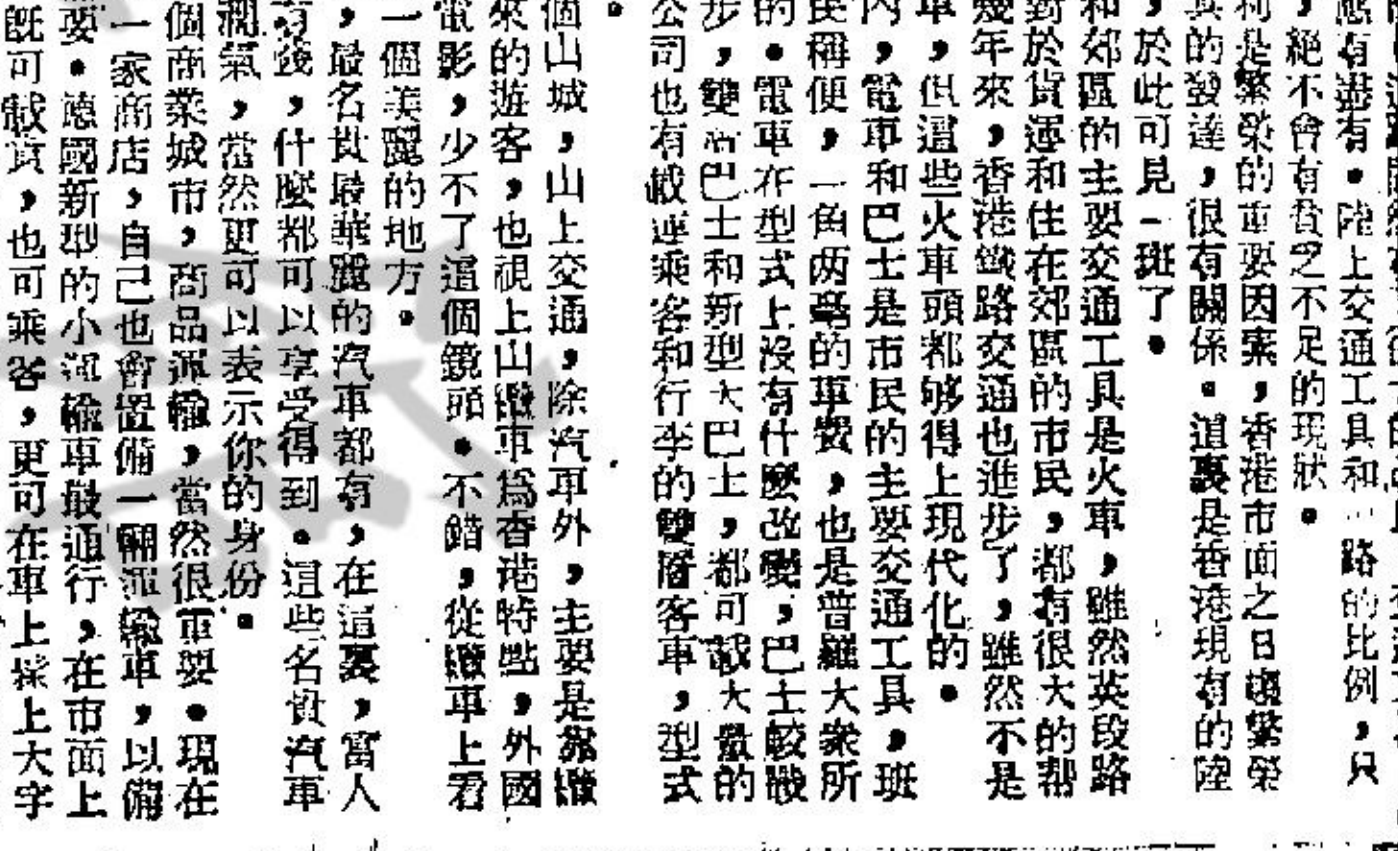 應有盡有。陸上交通工具和　路的比例，只
，絕不會有貧乏不足的現狀。
利是繁榮的重要因素，香港市面之日趨繁榮
真的發達，很有關係。這裏是香港現有的陸
，於此可見一斑了。
和郊區的主要交通工具是火車，雖然英段路
對於貨運和住在郊區的市民，都有很大的幫
幾年來，香港鐵路交通也進步了，雖然不是
車，但這些火車頭都够得上現代化的。
內，電車和巴士是市民的主要交通工具，班
民稱便，一角両毫的車費，也是普羅大衆所
的。電車在型式上沒有什麼改變，巴士較戰
步，雙層巴士和新型大巴士，都可載大量的
公司也有載運乘客和行李的雙層客車，型式
。
個山城，山上交通，除汽車外，主要是靠纜
來的遊客，也視上山纜車爲香港特點，外國
電影，少不了這個鏡頭。不錯，從纜車上看
一個美麗的地方。
，最名貴最華麗的汽車都有，在這裏，富人
有錢，什麼都可以享受得到。這些名貴汽車
潤氣，當然更可以表示你的身份。
個商業城市，商品運輸，當然很重要。現在
一家商店，自己也會置備一輛運輸車，以備
要。德國新型的小運輸車最通行，在市面上
旣可載貨，也可乘客，更可在車上採上大字